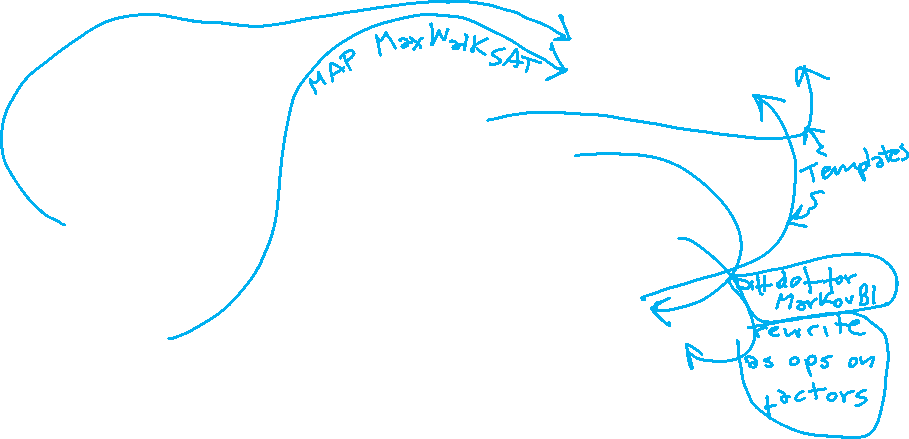 MAP MaxWalkSAT
Templates
Diff def for
MarkovBl
rewrite
as ops on
factors